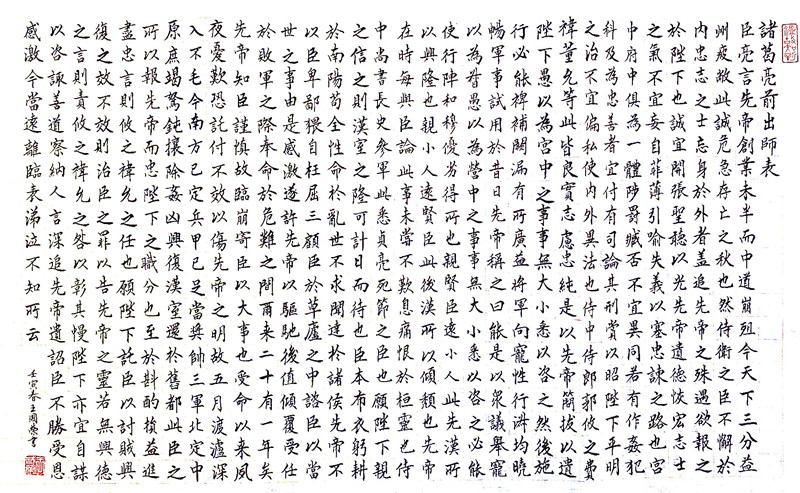 諸葛亮前出師表
臣亮言先帝創業未半而中道崩殂今天下三分益
州疲敝此誠危急存亡之秋也然侍衛之臣不懈於
内忠志之士忘身於外者盖追先帝之殊遇欲報之
於陛下也誠宜開張聖聽以光先帝遺德恢宏志士
之氣不宜妄自菲薄引喻失義以塞忠諫之路也宮
中府中俱為一體陟罰臧否不宜異同若有作姦犯
科及為忠善者宜付有司論其刑賞以昭陛下平明
之治不宜偏私使内外異法也侍中侍郎郭攸之費
禕董允等此皆良實志慮忠純是以先帝簡拔以遺
陛下愚以為宮中之事事無大小悉以咨之然後施
行必能裨補闕漏有所廣益將軍向寵性行淑均曉
暢軍事試用於昔日先帝稱之曰能是以眾議舉寵
以為督愚以為營中之事事無大小悉以咨之必能
使行陣和穆優劣得所也親賢臣遠小人此先漢所
以興隆也親小人遠賢臣此後漢所以傾頹也先帝
在時每與臣論此事未嘗不歎息痛恨於桓靈也侍
中尚書長史參軍此悉貞亮死節之臣也願陛下親
之信之則漢室之隆可計日而待也臣本布衣躬耕
於南陽苟全性命於亂世不求聞達於諸侯先帝不
以臣卑鄙猥自枉屈三顧臣於草廬之中諮臣以當
世之事由是感激遂許先帝以驅馳後值傾覆受任
於敗軍之際奉命於危難之間爾來二十有一年矣
先帝知臣謹慎故臨崩寄臣以大事也受命以來夙
夜憂歎恐託付不效以傷先帝之明故五月渡瀘深
入不毛今南方已定兵甲已足當獎帥三軍北定中
原庶竭駑鈍攘除姦凶興復漢室還於舊都此臣之
所以報先帝而忠陛下之職分也至於斟酌損益進
盡忠言則攸之禕允之任也願陛下託臣以討賊興
復之效不效則治臣之罪以告先帝之靈若無興德
之言則責攸之禕允之咎以彰其慢陛下亦宜自謀
以咨諏善道察納人言深追先帝遺詔臣不勝受恩
感激今當遠離臨表涕泣不知所云
壬寅春王國書